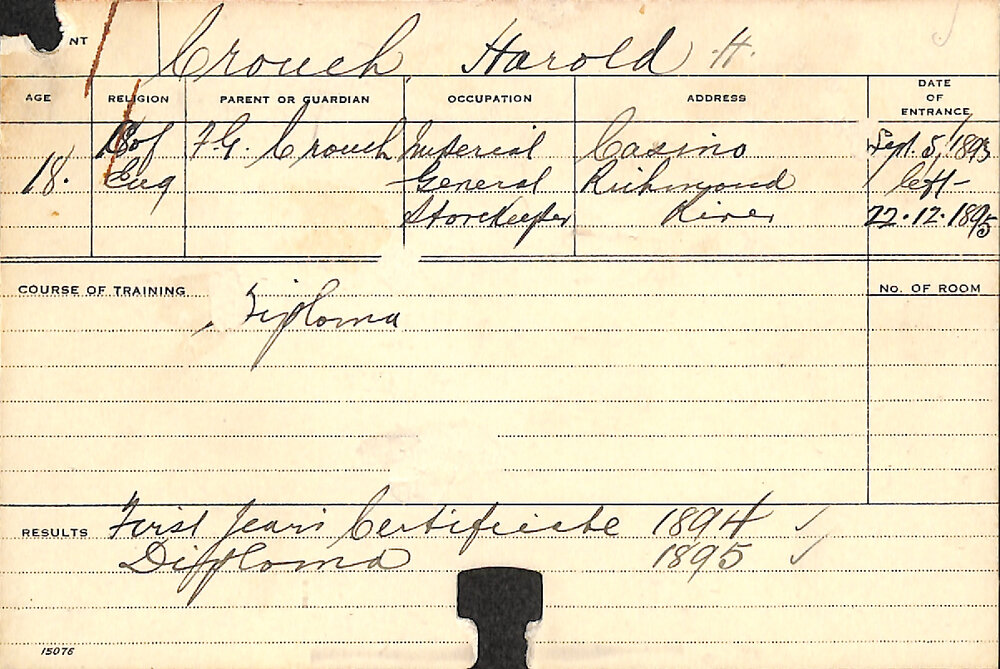 NT Crouch, Harold H.
AGE RELIGION PARENT OR GUARDIAN OCCUPATION ADDRESS DATE OF ENTRANCE
18. C of Eng F.G. Crouch Imperial General Storekeeper Casino Richmond River Sept. 5, 1893 left - 22.12.1895
COURSE OF TRAINING No. OF ROOM
Diploma
RESULTS First Year's Certificate 1894 ✓
Diploma 1895 ✓
15076